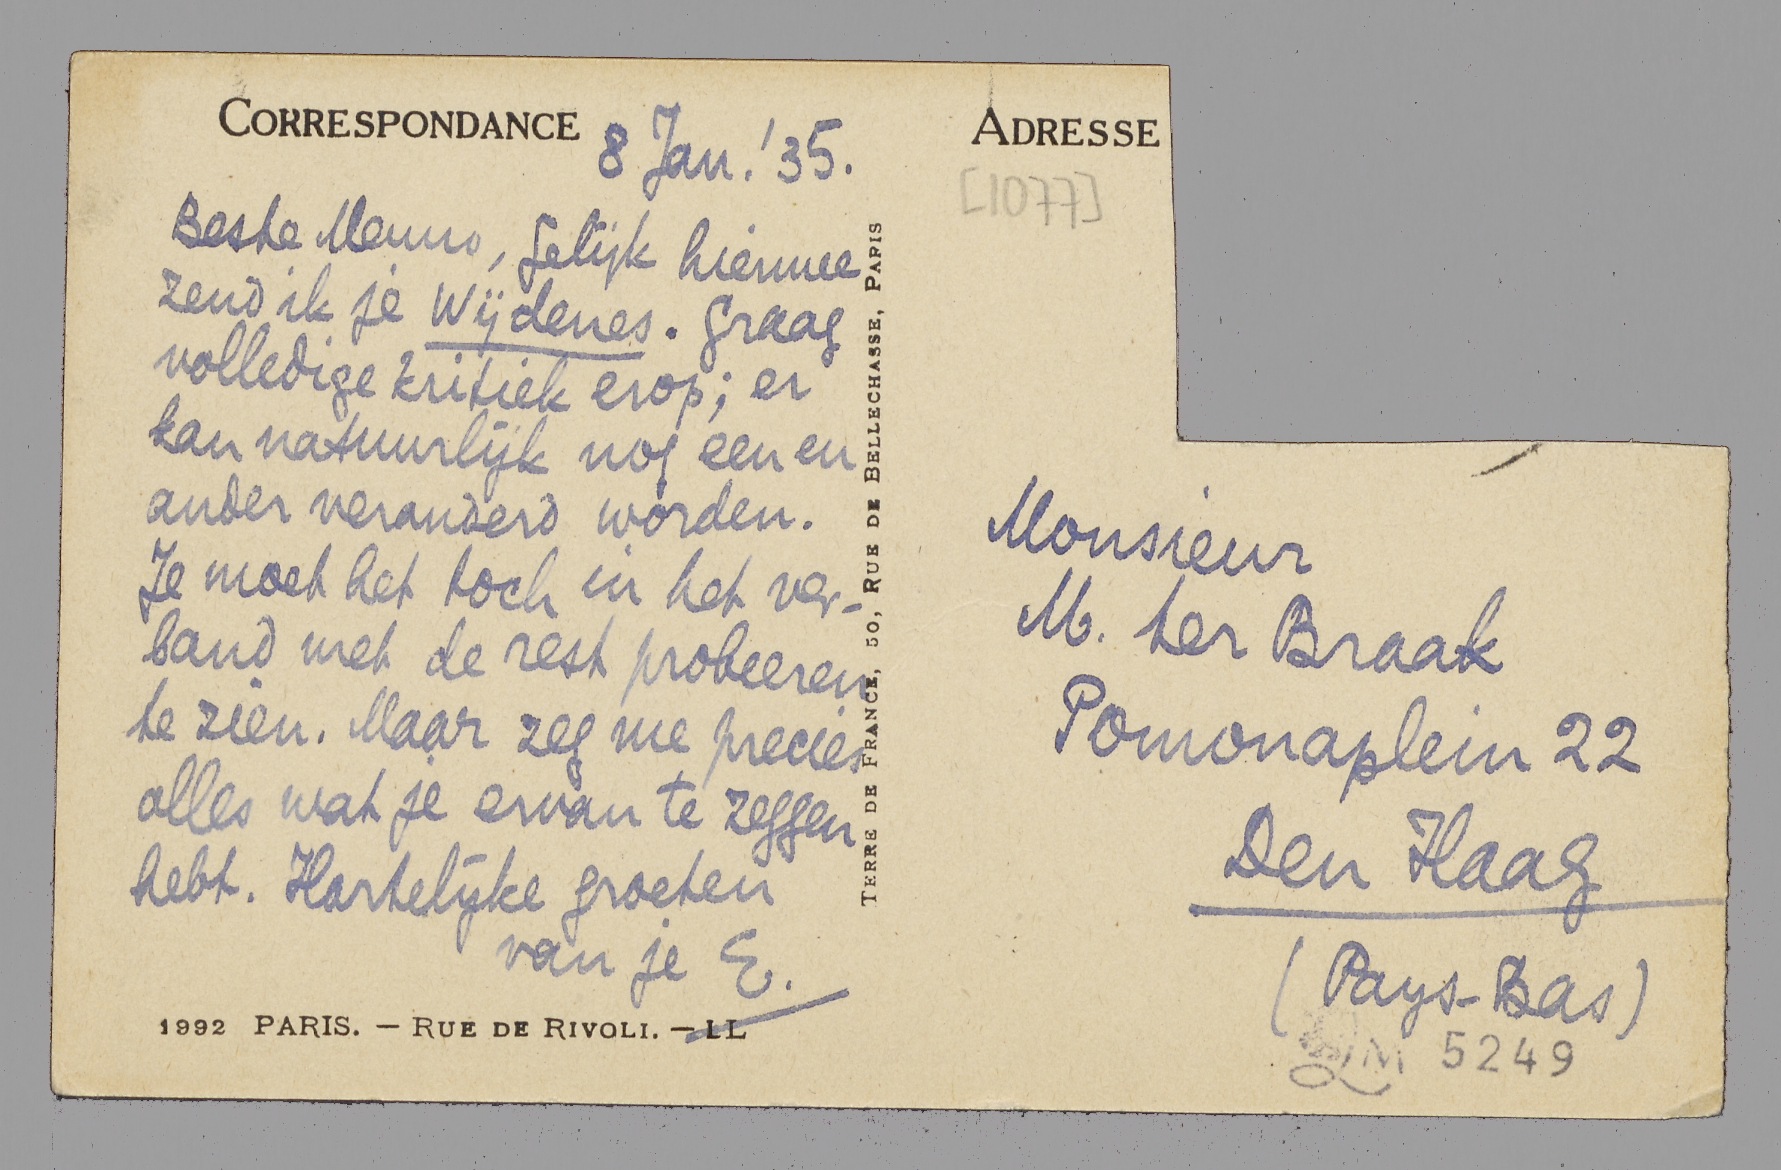 CORRESPONDANCE
8 Jan. '35.
Beste Menno, gelijk hiermee
zend ik je Wijdenes. Graag
volledige kritiek erop; er
kan natuurlijk nog een en
ander veranderd worden.
Je moet het toch in het ver-
band met de rest probeeren
te zien. Maar zeg me precies
alles wat je ervan te zeggen
hebt. Hartelijke groeten
van je E.
1992 PARIS. — RUE DE RIVOLI. — LL
TERRE DE FRANCE, 50, RUE DE BELLECHASSE, PARIS
ADRESSE
[1077]
Monsieur
M. ter Braak
Pomonaplein 22
Den Haag
(Pays-Bas)
LM 5249